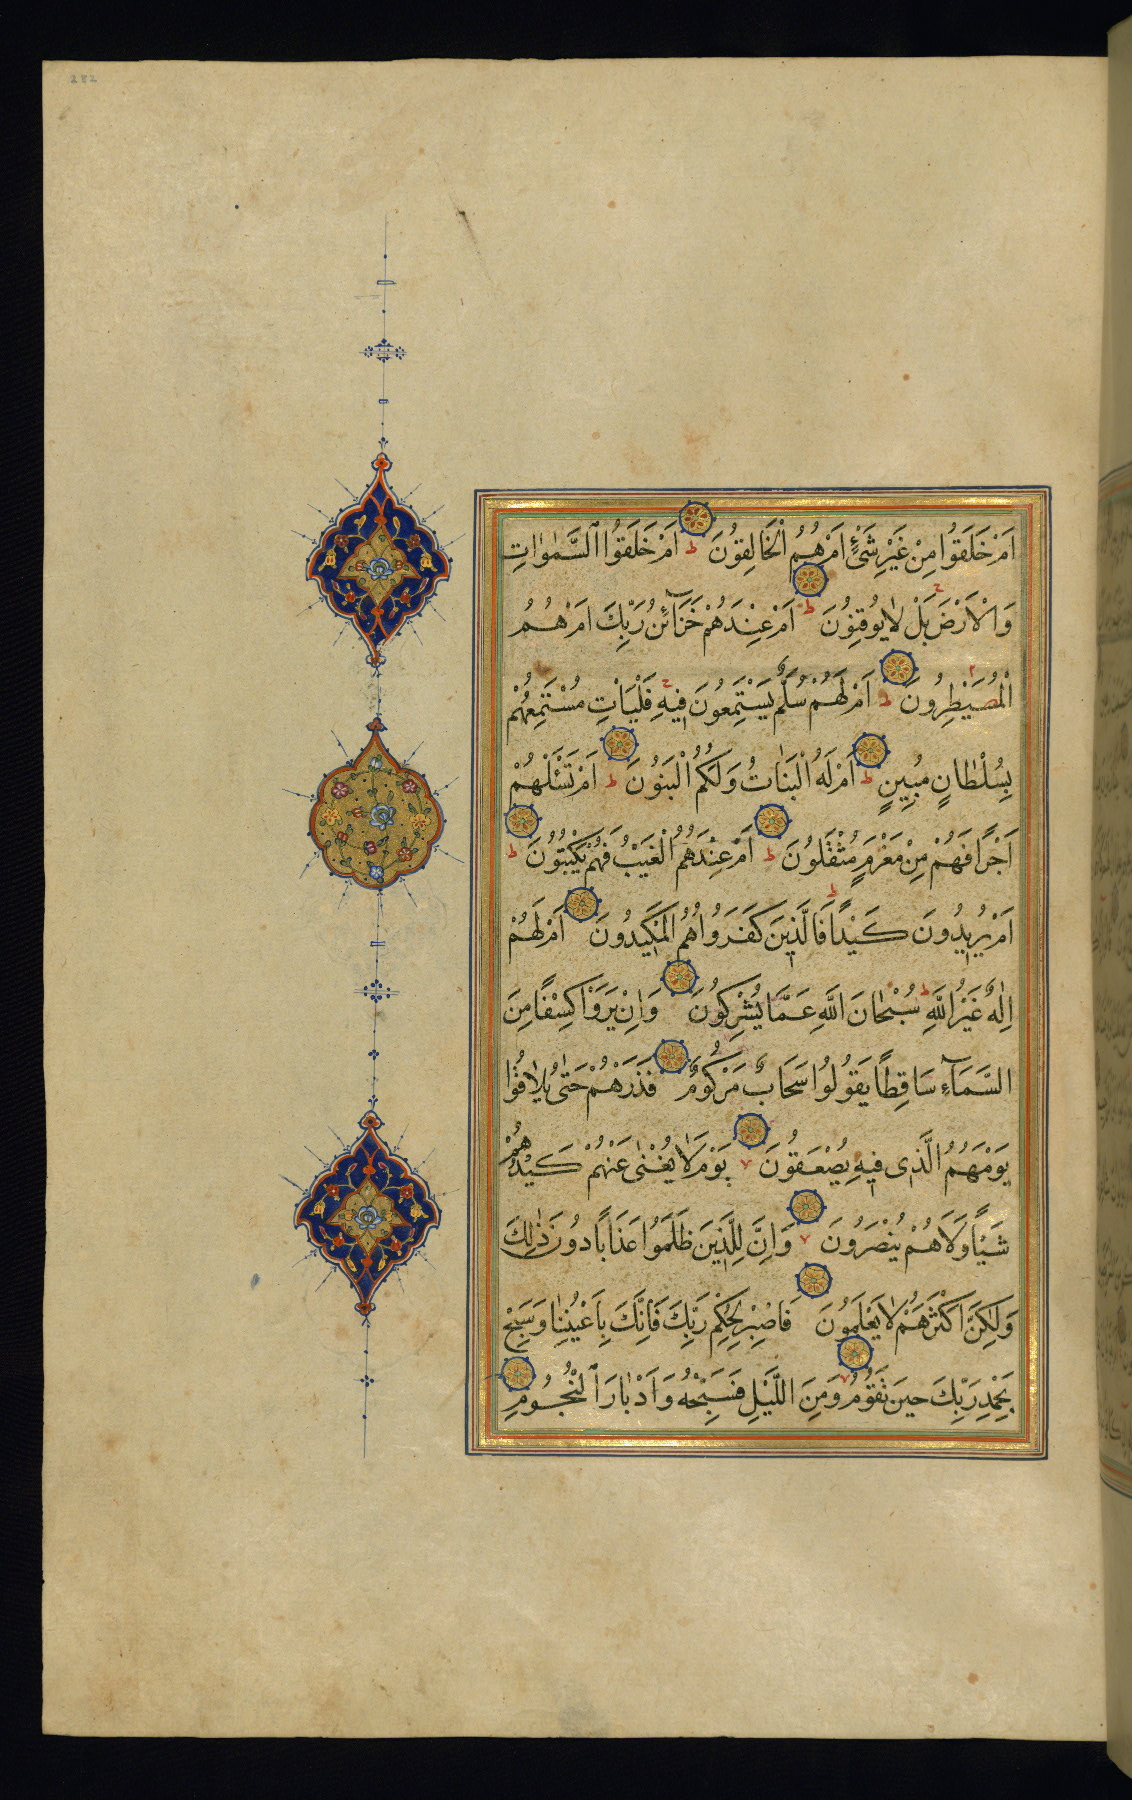 282
اَمْ خُلِقُوا مِنْ غَيْرِ شَيْءٍ اَمْ هُمُ الْخَالِقُونَ ط اَمْ خَلَقُوا السَّمٰوَاتِ
وَالْاَرْضَ ج بَلْ لَا يُوقِنُونَ ط اَمْ عِنْدَهُمْ خَزَآئِنُ رَبِّكَ اَمْ هُمُ
الْمُصَيْطِرُونَ ط اَمْ لَهُمْ سُلَّمٌ يَسْتَمِعُونَ فِيهِ ج فَلْيَأْتِ مُسْتَمِعُهُمْ
بِسُلْطَانٍ مُبِينٍ ط اَمْ لَهُ الْبَنَاتُ وَلَكُمُ الْبَنُونَ ط اَمْ تَسْئَلُهُمْ
اَجْرًا فَهُمْ مِنْ مَغْرَمٍ مُثْقَلُونَ ط اَمْ عِنْدَهُمُ الْغَيْبُ فَهُمْ يَكْتُبُونَ ط
اَمْ يُرِيدُونَ كَيْدًا ط فَالَّذِينَ كَفَرُوا هُمُ الْمَكِيدُونَ اَمْ لَهُمْ
اِلٰهٌ غَيْرُ اللّٰهِ ط سُبْحَانَ اللّٰهِ عَمَّا يُشْرِكُونَ وَاِنْ يَرَوْا كِسْفًا مِنَ
السَّمَآءِ سَاقِطًا يَقُولُوا سَحَابٌ مَرْكُومٌ فَذَرْهُمْ حَتّٰى يُلَاقُوا
يَوْمَهُمُ الَّذِى فِيهِ يُصْعَقُونَ لا يَوْمَ لَا يُغْنِى عَنْهُمْ كَيْدُهُمْ
شَيْئًا وَلَا هُمْ يُنْصَرُونَ لا وَاِنَّ لِلَّذِينَ ظَلَمُوا عَذَابًا دُونَ ذٰلِكَ
وَلٰكِنَّ اَكْثَرَهُمْ لَا يَعْلَمُونَ فَاصْبِرْ لِحُكْمِ رَبِّكَ فَاِنَّكَ بِاَعْيُنِنَا وَسَبِّحْ
بِحَمْدِ رَبِّكَ حِينَ تَقُومُ لا وَمِنَ اللَّيْلِ فَسَبِّحْهُ وَاَدْبَارَ النُّجُومِ